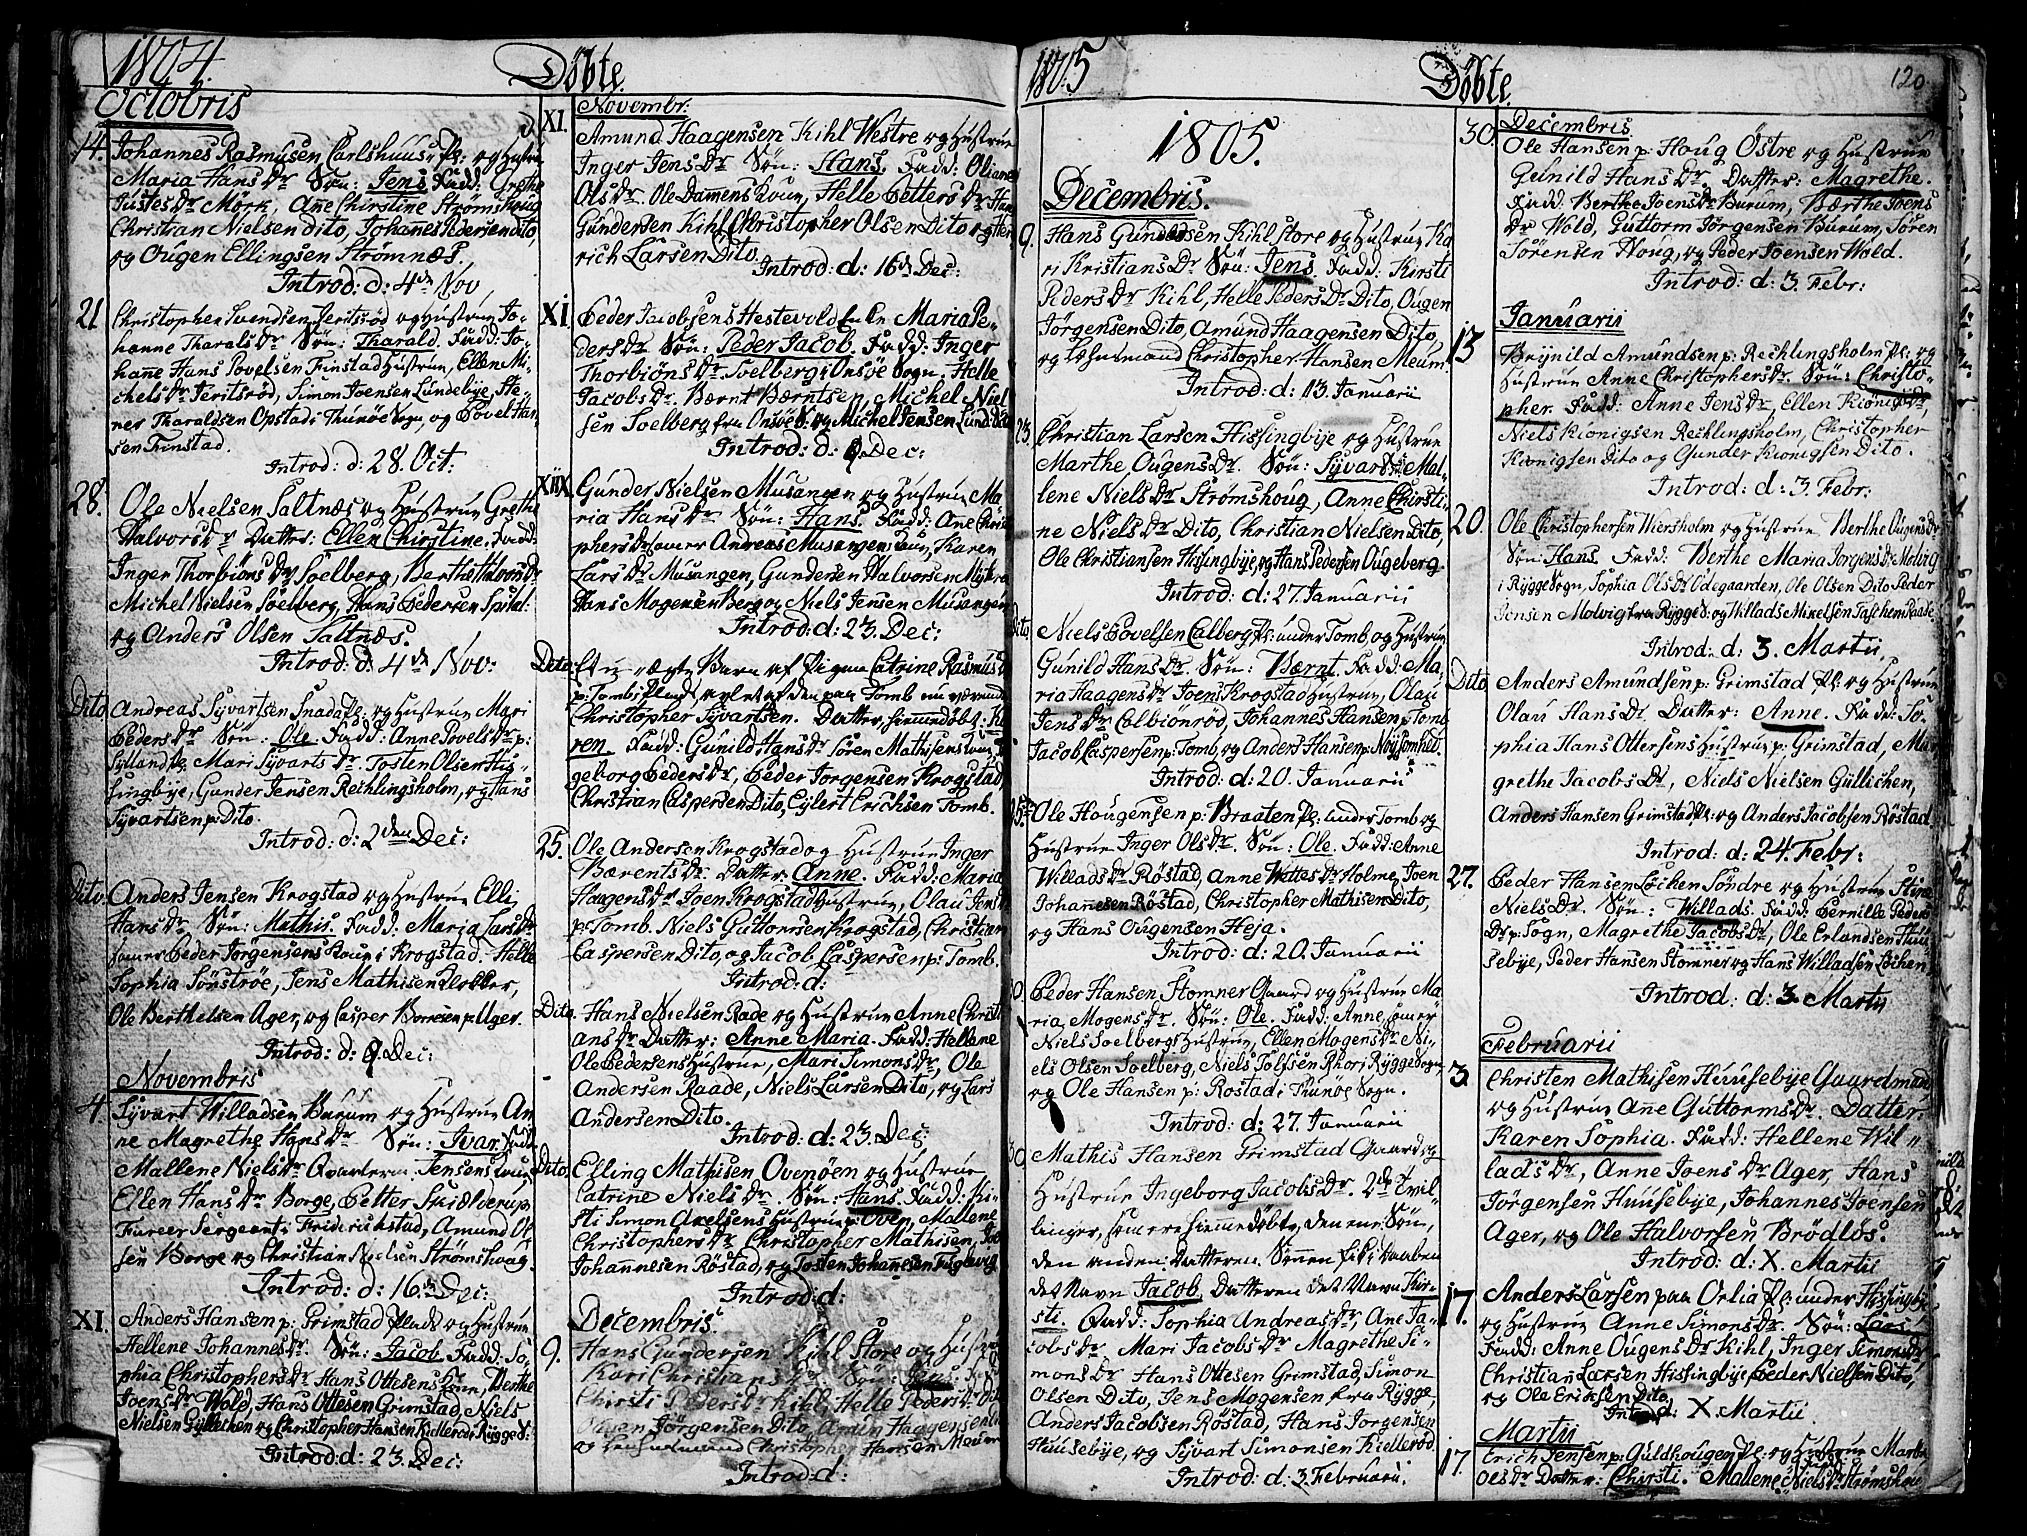 1804.
Döbte.
Octobris
14. Johannes Rasmusen Carlshuus Pl: og Hustru
Maria Hans Dr Sön: Jens. Fadd: Grethe
Justes Dr Mork, Añe Chirstine Strömshoug
Christian Nielsen Dito, Johañes Pedersen Dito,
og Ougen Ellingsen Strömnæs.
Introd: d: 4de Nov,
21 Christopher Svendsen Jeritsröd og Hustru Jo-
hanne Tharals Dr Sön: Tharald. Fadd: Jo-
hañe Hans Povelsen Finstad Hustru, Ellen Mi-
chels Dr Jeritsröd, Simon Joensen Lundebye, Ste-
ner Tharaldsen Opstad i Thunöe Sogn, og Povel Han-
sen Finstad.
Introd: d: 28. Oct:
28. Ole Nielsen Saltnæs og Hustrue Grethe
Halvors Dr Datter: Ellen Chirstine. Fadd:
Inger Thorbiöns Dr Soelberg, Berthe Halvors Dr
Michel Nielsen Soelberg, Hans Pedersen Spidal:
og Anders Olsen Saltnæs.
Introd: d: 4de Nov:
Dito Andreas Syvartsen Snada Pl. og Hustrue Mari
Peders Dr Sön: Ole. Fadd: Anne Povels Dr p:
Sylland Pl. Mari Syvarts Dr. Tosten Olsen His-
singbye, Gunder Jensen Rechlingsholm, og Hans
Syvartsen p: Dito.
Introd: d: 2den Dec:
Dito. Anders Jensen Krogstad og Hustrue Elli
Hans Dr. Sön: Mathis. Fadd: Maria Lars Dr
som er Peder Jörgensens Kone i Krogstad. Helle
Sophia Sönströe, Jens Mathisen Klokker,
Ole Berthelsen Ager, og Casper Borresen p: Ager.
Introd: d: 9 Dec:
Novembris
4. Syvart Willadsen Burum og Hustrue An
ne Magrethe Hans Dr Sön: Ivar. Fadd:
Mallene Niels Dr Qvarterm. Jensens Kone,
Ellen Hans Dr Borge, Petter Skidlverup
Fureer Sergeant i Friderichstad, Amund Ol
sen Borge og Christian Nielsen Strömshoug.
Introd: d: 16de Dec:
XI. Anders Hansen p: Grimstad Plads og Hustrue
Hellene Johannes Dr. Sön: Jacob Fadd: So-
phia Christophers Dr Hans Ottesens Kone, Berthe
Joens Dr Wold, Hans Ottesen Grimstad, Niels
Nielsen Gyllechen og Christopher Hansen Kiolleröd i Rygge S:
Introd: d: 23. Dec:
Novembr:
XI. Amund Haagensen Kihl Westre og Hustrue
Inger Jens Dr Sön: Hans. Fadd: Oliane
Ols Dr. Ole Damens Kone, Helle Petters Dr Hans
Gundersen Kihl Christopher Olsen Dito og Hen
rich Larsen Dito.
Introd: d: 16de Dec:
XI Peder Jacobsens Hestevold Enke Maria Pe-
ders Dr Sön: Peder Jacob. Fadd: Inger
Thorbiöns Dr Soelberg i Onsöe Sogn. Helle
Jacobs Dr. Bærnt Bærntsen, Michel Niel
sen Soelberg fra Onsöe S: og Michel Jensen Lund: Dito
Introd: d: 9 Dec:
XIIX Gunder Nielsen Musangen og Hustrue Ma-
ria Hans Dr Sön: Hans. Fadd: Ane Christo
phers Dr som er Andreas Musangens Kone, Karen
Lars Dr Musangen, Gundersen Halvorsen Mystra
Hans Mogensen Berg og Niels Jensen Musangen
Introd: d: 23. Dec:
Dito Et u-ægte Barn af Pigen Catrine Rasmus Dr
p: Tombs Plads, avlet af den paa Tomb nu værende
Christopher Syvartsen. Datter, hiemmedöbt: Ka
ren. Fadd: Gunild Hans Dr Sören Mathisens Kone,
geborg Peders Dr, Peder Jorgensen Krogstad,
Christian Caspersen Dito, Eylert Erichsen Tomb.
25. Ole Andersen Krogstad og Hustrue Inger
Bærents Dr. Datter: Anne. Fadd: Maria
Haagens Dr Joen Krogstad Hustrue, Olau Jens Dr
p: Tomb. Niels Guttormsen Krogstad, Christian
Caspersen Dito, og Jacob Caspersen p: Tomb.
Introd: d:
Dito Hans Nielsen Rade og Hustrue Anne Christi
ans Dr Datter: Anne Maria. Fadd: Hellene
Ole Pedersens Hustrue, Mari Simons Dr, Ole
Andersen Raade, Niels Larsen Dito, og Lars
Andersen Dito.
Introd: d: 23. Dec:
Dito. Elling Mathisen Ovenöen og Hustrue
Catrine Niels Dr. Sön: Hans. Fadd: Ki-
sti Simon Axelsens Hustrue p: Oven, Mallene
Christophers Dr. Christopher Mathisen, Joen
Johañesen Röstad, og Tosten Johañesen Fuglevig
Introd: d:
Decembris.
9. Hans Gundersen Kihl Store og Hustrue
Kari Christians Dr Sön: Jens. Fadd:
Chirsti Peders Dr Kihl, Helle Peders Dr Dito
Ougen Jörgensen Dito, Amun Haagensen Dito
og Lehnsmand Christopher Hansen Meum
Introd: d:
1805
Döbte.
120
1805.
Decembris.
9. Hans Gundersen Kihl Store og Hustrue Ka
ri Kristians Dr Sön: Jens. Fadd: Kirsti
Peders Dr Kihl, Helle Peders Dr Dito, Ougen
Jörgensen Dito, Amund Haagensen Dito,
og Lehnsmand Christopher Hansen Meum.
Introd: d: 13. Januarii
23. Christian Larsen Hissingbye og Hustrue
Marthe Ougens Dr. Sön: Syvart. Mal-
lene Niels Dr Strömshoug, Anne Chirsti-
ne Niels Dr Dito, Christian Nielsen Dito,
Ole Christiansen Hissingbye, og Hans Pedersen Ougeberg
Introd: d: 27. Januarii
Dito Niels Povelsen Calberg Pl: under Tomb, og Hustrue
Gunild Hans Dr. Sön: Bærnt. Fadd: Ma-
ria Haagens Dr Joens Krogstad Hustrue, Olau
Jens Dr Calbiönröd, Johannes Hansen p: Tomb
Jacob Caspersen p: Tomb, og Anders Hansen p: Nöysomhed.
Introd: d: 20. Januarii
25 Ole Hougensen p: Braaten Pl: under Tomb og
Hustrue Inger Ols Dr. Sön: Ole. Fadd: Anne
Willads Dr Röstad, Anne Wettes Dr Holme, Joen
Johannesen Röstad, Christopher Mathisen Dito,
og Hans Ougensen Heja.
Introd: d: 20. Januarii
30. Peder Hansen Stomner Gaard og Hustrue Ma
ria Mogens Dr. Sön: Ole. Fadd: Anne, som er
Niels Soelbergs Hustrue, Ellen Mogens Dr Ni-
els Olsen Soelberg, Niels Tolfsen Rhor i Rygge Sogn,
og Ole Hansen p: Rostad i Thunöe Sogn.
Introd: d: 27. Januarii
30. Mathis Hansen Grimstad Gaard og
Hustrue Ingeborg Jacobs Dr. 2de Tvil-
linger, som ere hieme döbte, den ene: Sön,
den anden: Datteren. Sönen fik i Daaben
det Navn Jacob, Datteren det Navn Kir-
sti. Fadd: Sophia Andreas Dr, Ane Ja-
cobs Dr. Mari Jacobs Dr Magrethe Si-
mons Dr Hans Ottesen Grimstad, Simon
Olsen Dito, Jens Mogensen fra Rygge,
Anders Jacobsen Röstad, Hans Jorgensen
Huusebye, og Syvart Simonsen Kielleröd
Introd: d: 3. Februarii.
Decembris
30. Ole Hansen p: Houg Östre og Hustrue
Gunild Hans Dr. Datter: Magrethe.
Fadd: Berthe Joens Dr Burum, Bærthe Joens
Dr Wold, Guttorm Jörgensen Burum, Sören
Sörensen Houg, og Peder Joensen Wold.
Introd: d: 3. Febr:
Januarii
13 Brynild Amundsen p: Rechlingsholm Pl: og
Hustrue Anne Christophers Dr. Sön: Christo-
pher. Fadd: Anne Jens Dr, Ellen Kiönigs Dr,
Niels Kionigsen Rechlingsholm, Christopher
Kionigsen Dito og Gunder Kionigsen Dito.
Introd: d: 3. Febr:
20. Ole Christophersen Wiersholm og Hustrue Berthe Ougens Dr
Sön: Hans. Fadd: Berthe Maria Jorgens Dr Molvig
i Rygge Sogn, Sophia Ols Dr Odegaarden, Ole Olsen Dito Peder
Jensen Molvig fra Rygge S: og Willads Mixelsen Taschem Raade,
Introd: d: 3. Martii,
Dito Anders Amundsen p: Grimstad Pl: og Hustrue
Olau Hans Dr. Datter: Anne. Fadd: So-
phia Hans Ottersens Hustrue p: Grimstad, Mar
grethe Jacobs Dr, Niels Nielsen Gyllichen,
Anders Hansen Grimstad Pl: og Anders Jacobsen Röstad
Introd: d: 24. Febr:
27. Peder Hansen Löchen Söndre og Hustrue Stine
Niels Dr. Sön: Willads. Fadd: Pernille Peders
Dr p: Sogn, Magrethe Jacobs Dr, Ole Erlandsen Huu
sebye, Peder Hansen Stomner og Hans Willadsen Löchen
Introd: d: 3 Martii
Februarii
3. Christen Mathisen Huusebye Gaardmand
og Hustrue Añe Guttorms Dr. Datter:
Karen Sophia. Fadd: Hellene Wil-
lads Dr, Anne Joens Dr Ager, Hans
Jörgensen Huusebye, Johannes Joensen
Ager, og Ole Halvorsen Brödlös.
Introd: d: X. Martii
17. Anders Larsen paa Orlia Pl: under Hissingbye
og Hustrue Anne Simons Dr. Sön: Lars.
Fadd: Anne Ougens Dr Kihl, Inger Simons Dr
Christian Larsen Hissingbye Peder Nielsen Dito,
og Ole Ericksen Dito
Introd: d: X. Martii
Martii
17. Erich Jensen p: Guldhougen Pl: og Hustrue Marte
Ols Dr Datter: Chirsti. Fadd: Mallene Niels Dr Strömshou